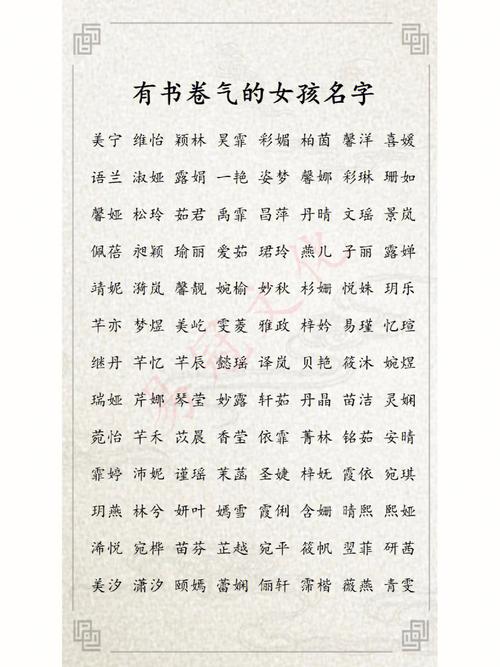 有书卷气的女孩名字
美宁 维怡 颖林 昊霏 彩媚 柏茵 馨洋 喜媛
语兰 淑娅 露娟 一艳 姿梦 馨娜 彩琳 珊如
馨娅 松玲 茹君 禹霏 昌萍 丹晴 文瑶 景岚
佩蓓 昶颖 瑜丽 爱茹 珺玲 燕儿 子丽 露婵
靖妮 漪岚 馨靓 婉榆 妙秋 杉姗 悦姝 玥乐
芊亦 梦煜 美屹 雯菱 雅政 梓妗 易瑾 忆瑄
继丹 芊忆 芊辰 懿瑶 译岚 贝艳 筱沐 婉煜
瑞娅 芹娜 琴莹 妙露 轩茹 丹晶 苗洁 灵娴
菀怡 芊禾 苡晨 香莹 依霏 菁林 铭茹 安晴
霏婷 沛妮 谨瑶 茉菡 圣婕 梓妩 霞依 宛琪
玥燕 林兮 妍叶 嫣雪 霞俐 含姗 晴熙 熙娅
浠悦 宛桦 苗芬 芷越 宛平 筱帆 翌菲 研茜
美汐 潇汐 颐嫣 蕾娴 俪轩 霈楷 薇燕 青雯
易冠文化